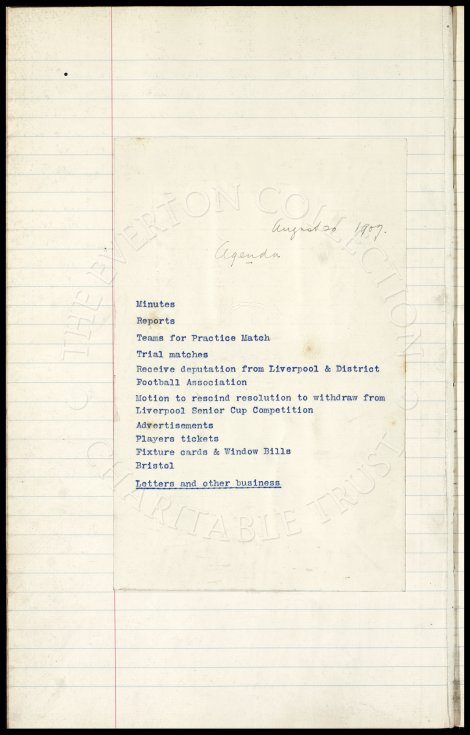 August 20 1907.
Agenda
Minutes
Reports
Teams for Practice Match
Trial matches
Receive deputation from Liverpool & District
Football Association
Motion to rescind resolution to withdraw from
Liverpool Senior Cup Competition
Advertisements
Players tickets
Fixture cards & Window Bills
Bristol
Letters and other business
THE EVERTON COLLECTION
CHARITABLE TRUST